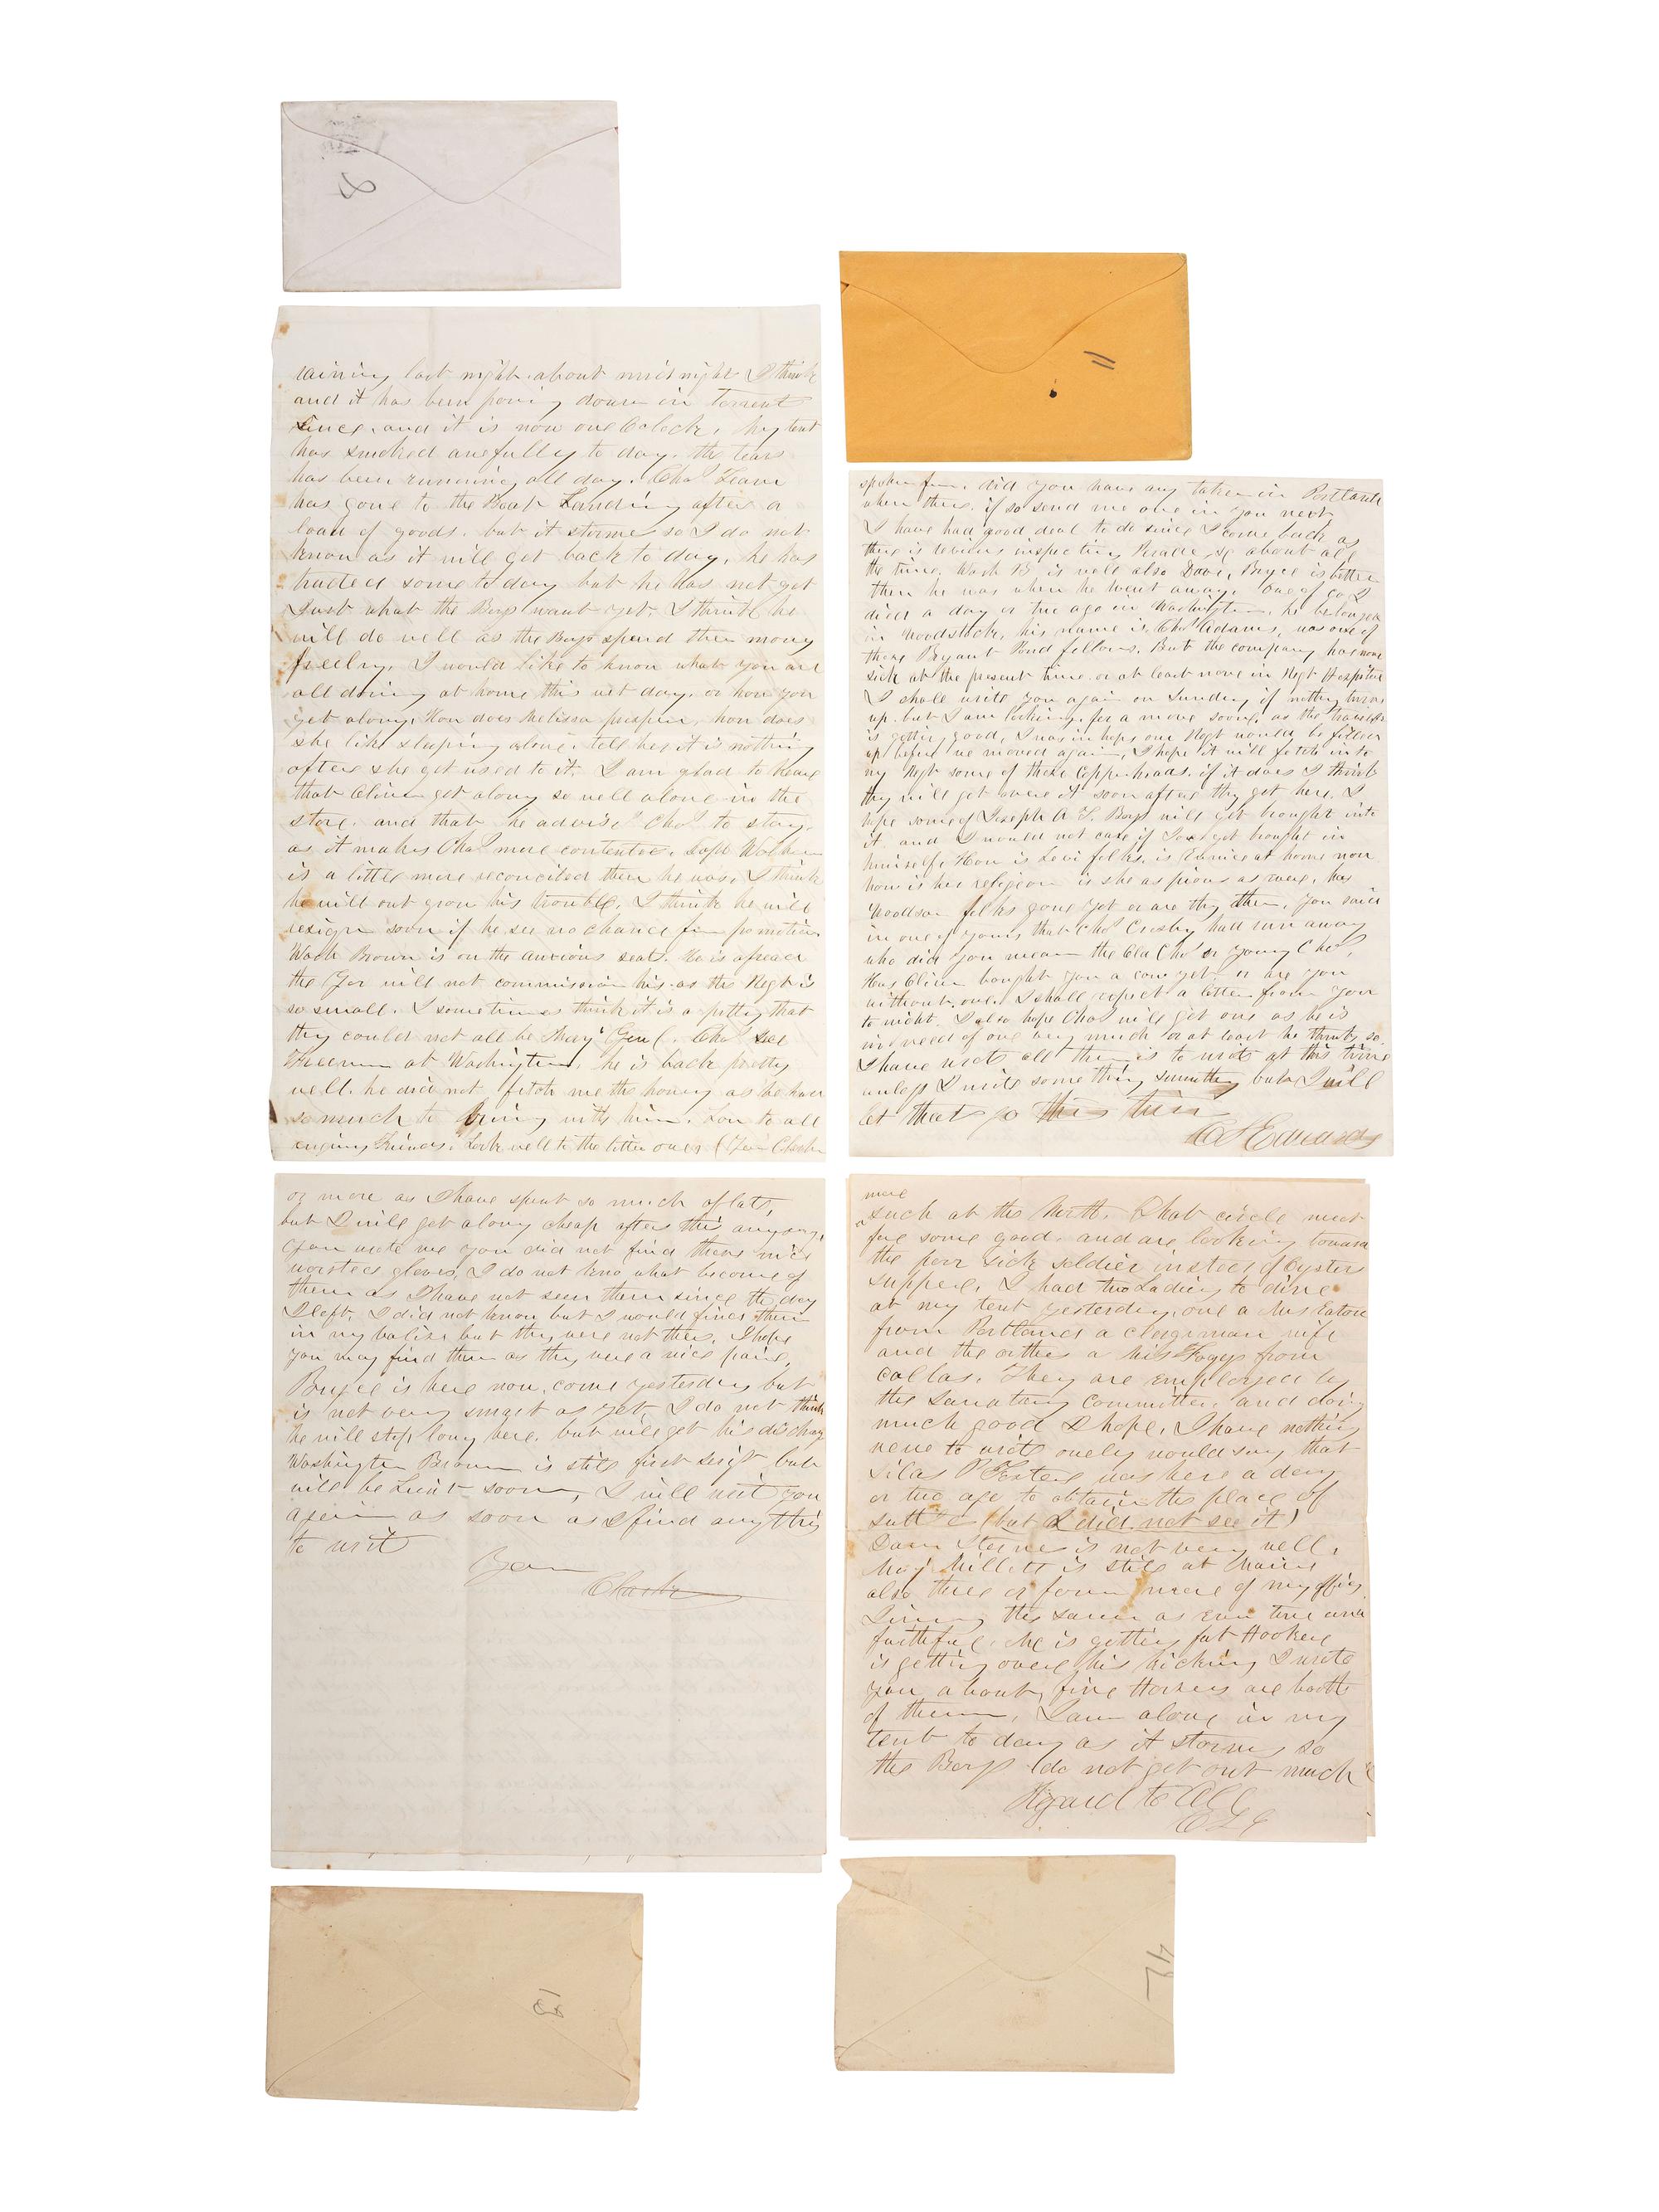 2
raining last night about midnight I think
and it has been poring down in torrents
since, and it is now one Oclock, My tent
has smoked awfully to day. the tears
has been running all day. Chas Team
has gone to the Boat Landing after a
load of goods. but it storms so I do not
know as it will get back to day, he has
traded some to day but he has not got
Just what the Boys want yet. I think he
will do well as the Boys spend their mony
freely. I would like to know what you are
all doing at home this wet day. or how you
get along. How does Melissa prosper, how does
she like sleeping alone. tell her it is nothing
after she get used to it. I am glad to hear
that Oliver get along so well alone in the
store. and that he advise Chas to stay.
as it makes Chas more contented.
is a little more reconciled then he was. I think
he will out grow his trouble. I think he will
resign soon if he see no chance for promotion
Wash Brown is on the anxious seat. He is afraid
the Gov will not commission him as the Regt is
so small. I sometimes think it is a pitty that
they could not all be Maj Genl. Chas see
Freeman at Washington, he is back pretty
well. he did not fetch me the honey as he had
so much to bring with him. Love to all
enquiring Friends. Look well to the little ones (Your Charles
11
spoken for. did you have any taken in Portland
when there. if so send me one in you next
I have had good deal to do since I come back as
there is reviews inspecting Parade &c about all
the time. Wash B is well also Dave, Bryce is better
then he was when he went away. one of Co I
died a day or two ago in Washington. he belonged
in Woodstock, his name is Chas Adams, was one of
these Bryant Pond fellows. But the company has none
sick at the present time or at least none in Regt Hospital
I shall write you again on Sunday if nothing turns
up. but I am looking for a move soon, as the traveling
is getting good, I was in hopes our Regt would be filled
up before we moved again, I hope it will fetch into
my Regt some of those Copperheads. if it does I think
they will get over it soon after they get here. I
hope some of Joseph A. F. Boys will get brought into
it. and I would not care if got brought in
himself. How is Levi folks. is Eunice at home now
how is her religeon is she as pious as ever, has
Woodsom folks gone yet or are they there, you said
in one of yours that Chas Crosby had run away
who did you mean the Old Chas or young Chas,
Has Oliver bought you a cow yet. or are you
without one. I shall expect a letter from you
to night. I also hope Chas will get one as he is
in need of one very much or at least he thinks so.
I have wrote all there is to write at this time
unless I write something but I will
let that go this time
C S Edwards
or more as I have spent so much of late,
but I will get along cheap after this anyway,
You wrote me you did not find those nice
worsted gloves, I do not kno what become of
them as I have not seen them since the day
I left. I did not know but I would find them
in my valise but they were not there. I hope
you may find them as they were a nice paire.
Bryce is here now, come yesterday but
is not very smart as yet I do not think
he will stop long here. but will get his discharg
Washington Brown is still first Sergt but
will be Lieut soon, I will writ you
again as soon as I find anything
to writ
Your
Charles
more
such at the North. That circle must
fee some good. and are looking toward
the poor sick soldier insted of Oyster
suppers. I had two Ladies to dine
at my tent yesterday, one a Mrs Eaton
from Portland a clergiman wife
and the other a Miss Fogg from
Callas. They are employed by
the Sanatary Committee, and doing
much good I hope, I have nothing
new to write onely would say that
Silas P was here a day
or two ago to obtain the place of
(but I did not see it)
is not very well,
Maj Millett is still at Maine
also three or four more of my officers
the same as ever true and
faithful. he is getting fat Hooker
is getting over his kicking I wrote
you about, fine Horses are both
of them, I am alone in my
tent to day as it storms so
the Boys do not get out much
Regard to All
C S E
13
42